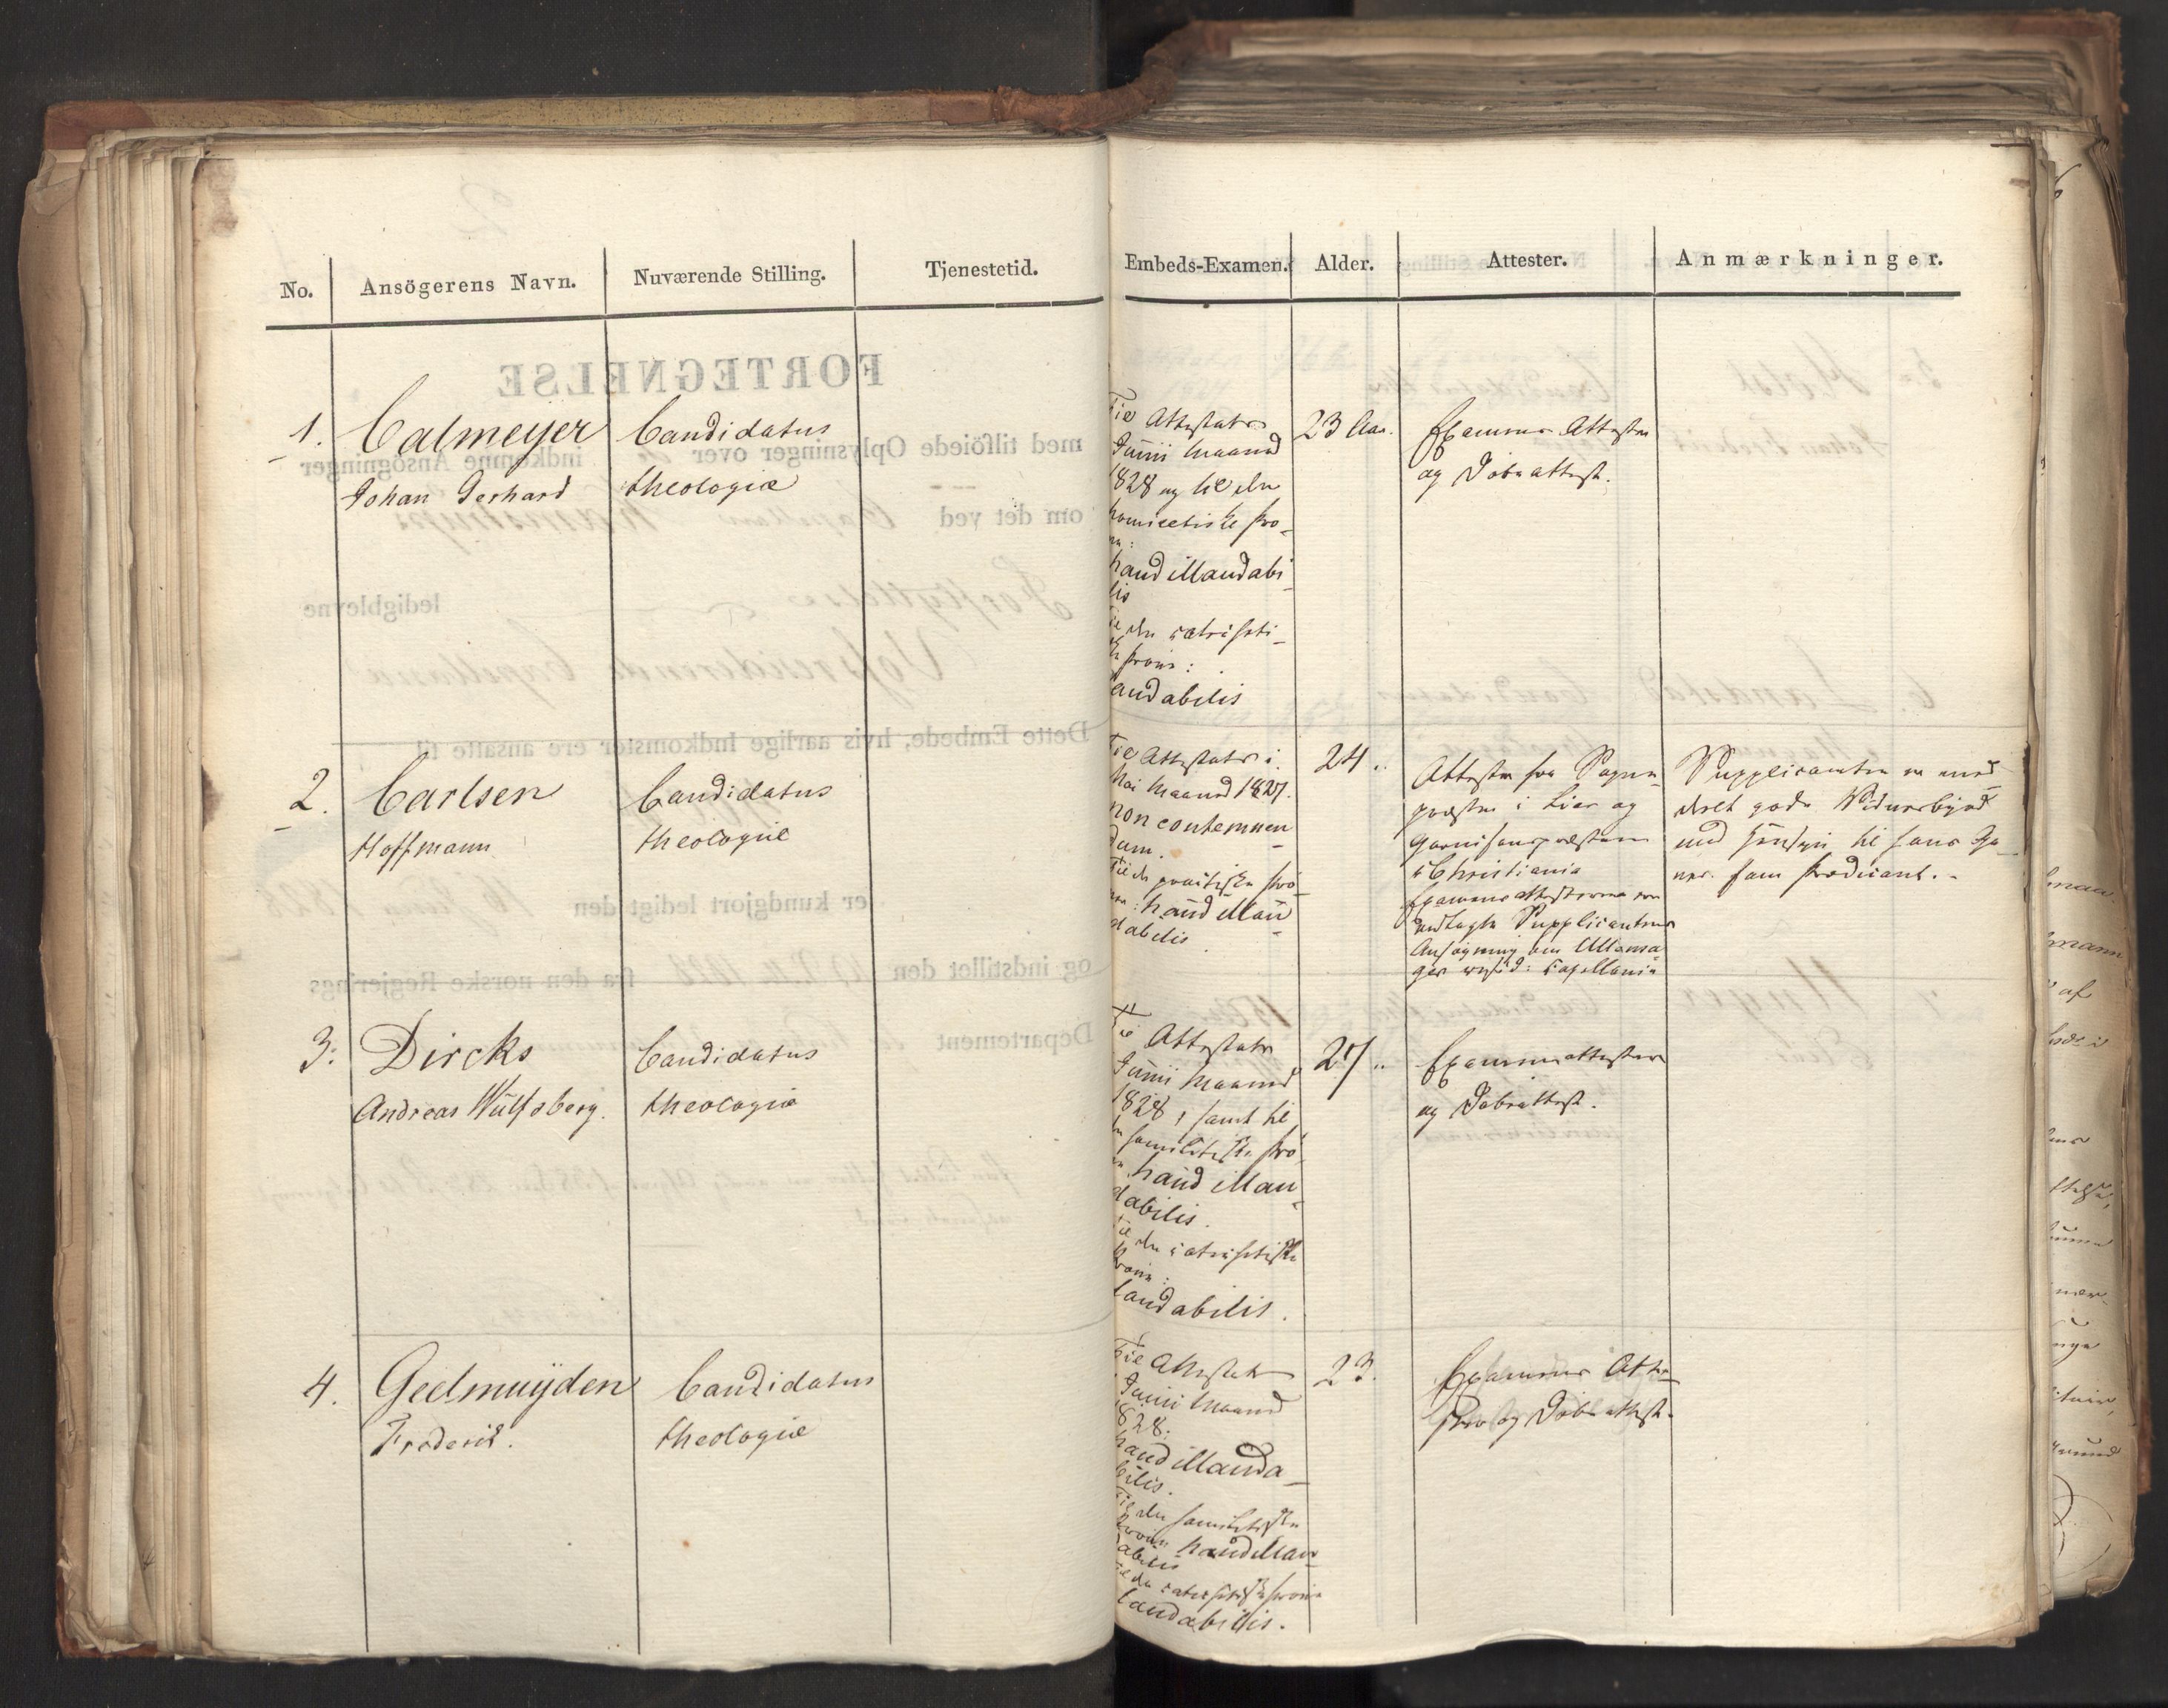 No.
Ansögerens Navn.
Nuværende Stilling.
Tjenestetid.
Embeds-Examen.
Alder.
Attester.
Anmærkninger.
1.
Calmeyer
Johan Gerhard
Candidatus
theologiæ
Til Attestats
Junii Maaned
1828 og til den
homiletiske Prø-
ve:
haud illaudabi-
lis
Til den catecheti-
ske Prøve:
laudabilis
23 Aar.
Examens Attester
og Døbeattest.
2.
Carlsen
Hoffmann
Candidatus
theologiæ
Til Attestats i
Mai Maaned 1827.
non contemnen-
dam.
Til den practiske Prø-
ve: haud illau-
dabilis
24 ..
Attester fra Sogne-
præsten i Lier og
Garnisonspræsten
i Christiania
Examensattesterne ere
vedlagte Supplicantens
Ansøgning om Ullens-
ager resid: Capellanie
Supplicanten er med-
deelt gode Vidnesbyrd
med Hensyn til hans Ga-
ver som Prædicant. -
3.
Dircks
Andreas Wulfsberg.
Candidatus
theologiæ
Til Attestats
Junii Maaned
1828, samt til
den homiletiske Prø-
ve haud illau-
dabilis.
Til den catechetiske
Prøve:
laudabilis.
27 ..
Examensattester
og Døbeattest.
4.
Geelmuyden
Frederik.
Candidatus
theologiæ
Til Attestats
Junii Maaned
1828:
haud illauda-
bilis.
Til den homiletiske
Prøve haud illau-
dabilis
Til den catechetiske Prøve
laudabilis.
23.
Examens Atte-
ster og Døbeattest.